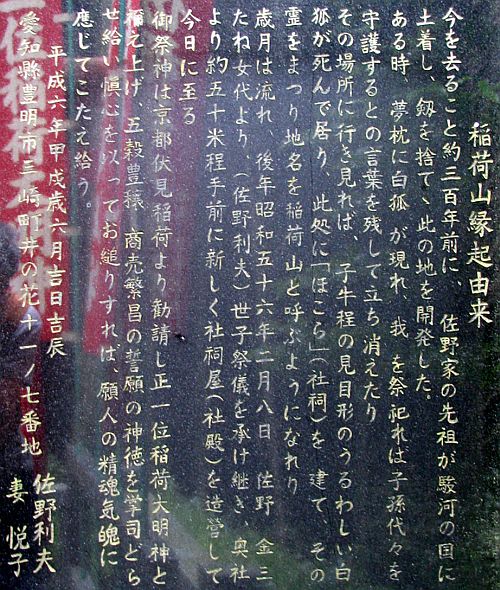 稲荷山縁起由来
今を去ること約三百年前に、佐野家の先祖が駿河の国に
土着し、剱を捨て、此の地を開発した。
ある時、夢枕に白狐が現れ、我を祭祀れは子孫代々を
守護するとの言葉を残して立ち消えたり
その場所に行き見れば、子牛程の見目形のうるわしい白
狐が死んで居り、此処に「ほこら」(社祠)を建て、その
霊をまつり地名を稲荷山と呼ぶようになれり
歳月は流れ、後年昭和五十六年二月八日 佐野 金三
たね女代より、(佐野利夫)世子祭儀を承け継ぎ、奥社
より約五十米程手前に新しく社祠屋(社殿)を造営して
今日に至る。
御祭神は京都伏見稲荷より勧請し正一位稲荷大明神と
称え上げ、五穀豊穣、商売繁昌の誓願の神徳を学司どら
せ給い慎心を以ってお縋りすれば、願人の精魂気魄に
應じてこたえ給う。
平成六年甲戌歳六月吉日吉辰
愛知縣豊明市三崎町井の花十一ノ七番地 佐野利夫
妻 悦子